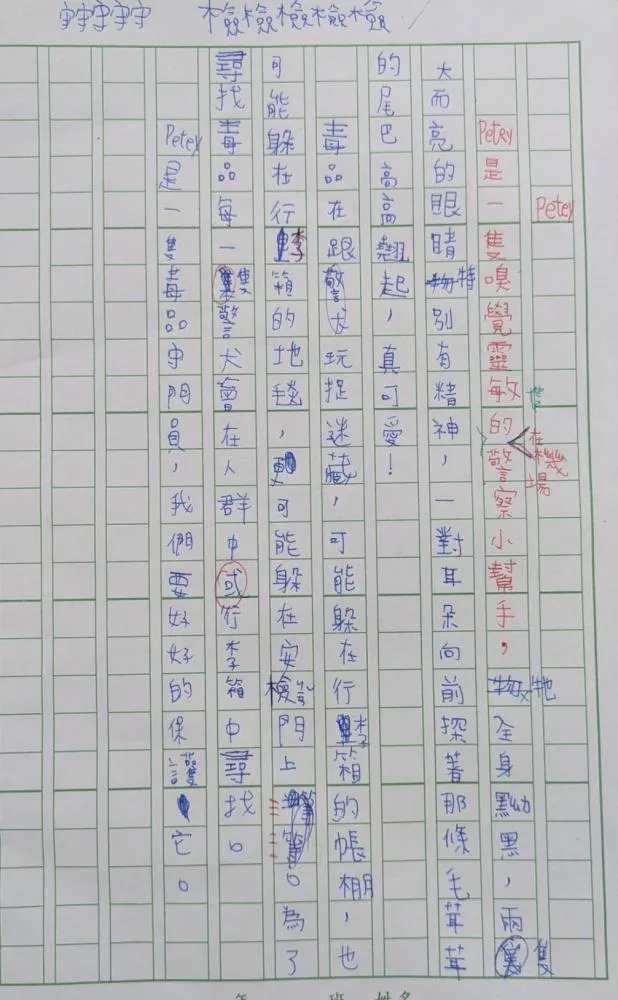 守守守守守 檢檢檢檢檢
Petey
Petey是一隻嗅覺靈敏的警察小幫手，牠全身黝黑，兩隻
在機場
大而亮的眼睛特別有精神，一對耳朵向前探著那條毛茸茸
的尾巴高高翹起，真可愛！
毒品在跟警犬玩捉迷藏，可能躲在行李箱的帳棚，也
可能躲在行李箱的地毯，更可能躲在安檢門上。為了
尋找毒品每一隻警犬會在人群中或行李箱中尋找。
Petey是一隻毒品守門員，我們要好好的保護它。